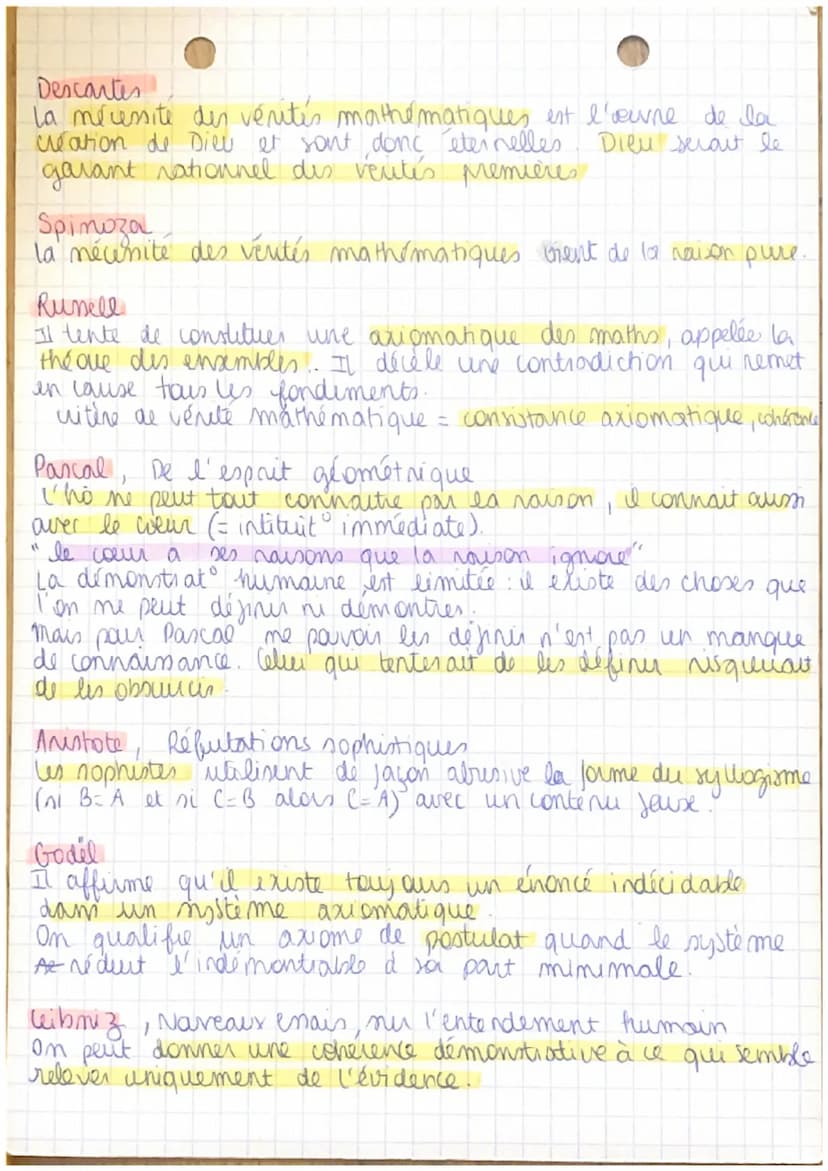 Descartes
La nécessité des vérités mathématiques est l'œuvre de la
création de Dieu et sont donc éternelles. Dieu serait le
garant rationnel des vérités premières
Spinoza
La nécessité des vérités mathématiques vient de la raison pure.
Russell
Il tente de constituer une axiomatique des maths, appelée la
théorie des ensembles. Il décèle une contradiction qui remet
en cause tous les fondements.
critère de vérité mathématique = consistance axiomatique, cohérence
Pascal, De l'esprit géométrique
L'hô ne peut tout connaitre par la raison, il connait aussi
avec le cœur (= intituit° immédiate).
"le cœur a ses raisons que la raison ignore"
La démonstrat° humaine est limitée : il existe des choses que
l'on ne peut définir ni démontrer.
Mais pour Pascal ne pouvoir les définir n'est pas un manque
de connaissance. Celui qui tenterait de les définir risquerait
de les obscurcir.
Aristote, Réfutations sophistiques
Les sophistes utilisent de façon abusive la forme du syllogisme
(si B=A et si C=B alors C=A) avec un contenu faux.
Godël
Il affirme qu'il existe toujours un énoncé indécidable
dans un système axiomatique.
On qualifie un axiome de postulat quand le système
réduit l'indémontrable à sa part minimale.
Leibniz, Nouveaux essais, sur l'entendement humain
On peut donner une cohérence démonstrative à ce qui semble
relever uniquement de l'évidence.